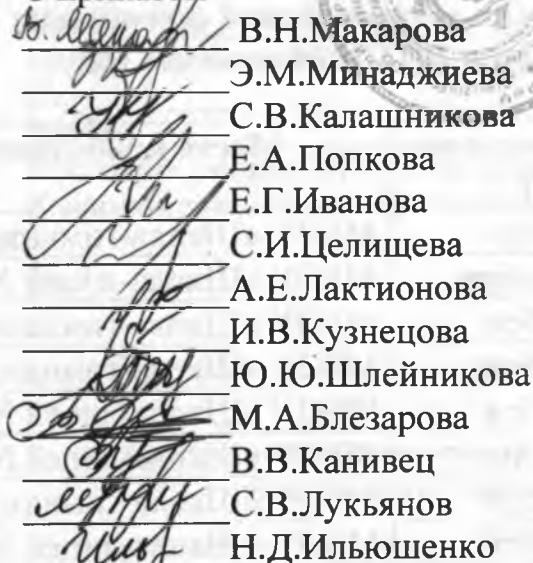 В.Н.Макарова
Э.М.Минаджиева
С.В.Калашникова
Е.А.Попкова
Е.Г.Иванова
С.И.Целищева
А.Е.Лактионова
И.В.Кузнецова
Ю.Ю.Шлейникова
М.А.Блезарова
В.В.Канивец
С.В.Лукьянов
Н.Д.Ильюшенко